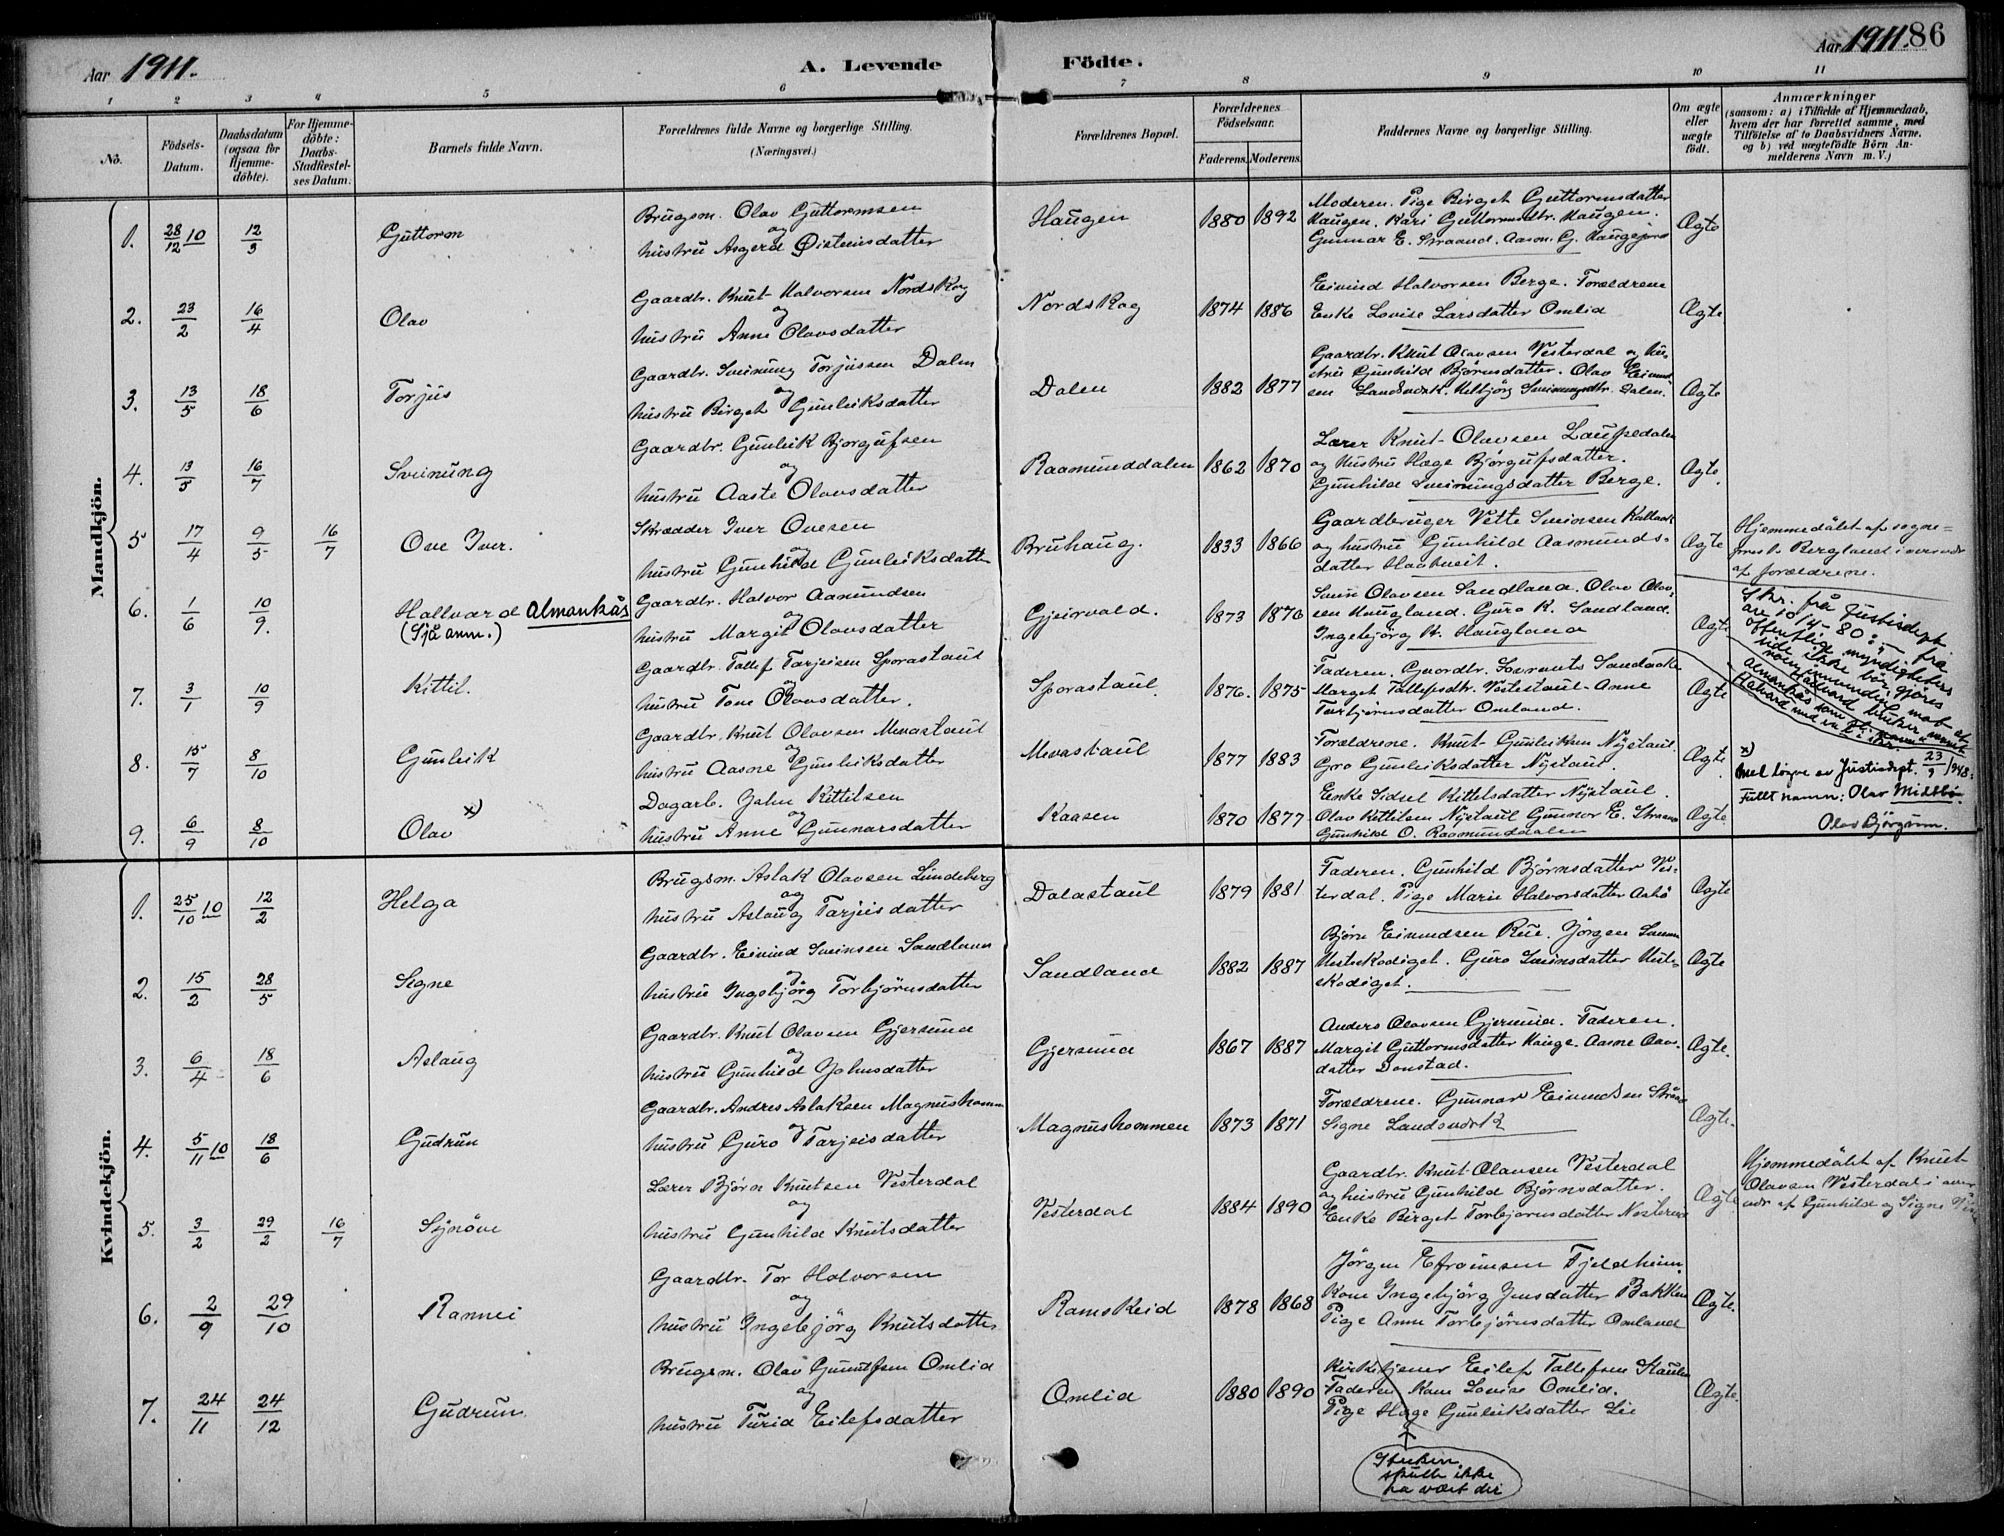 Aar 1911.
A. Levende Födte.
Aar 1911. 86
1 2 3 4 5 6 7 8 9 10 11
No.
Födsels-Datum.
Daabsdatum (ogsaa for Hjemme-döbte).
For Hjemme-döbte: Daabs-Stadfæstel-ses Datum.
Barnets fulde Navn.
Forældrenes fulde Navne og borgerlige Stilling.
(Næringsvei.)
Forældrenes Bopæl.
Forældrenes Födselsaar.
Faderens. Moderens.
Faddernes Navne og borgerlige Stilling.
Om ægte eller uægte födt.
Anmærkninger
(saasom: a) i Tilfælde af Hjemmedaab, hvem der har forrettet samme, med Tilföielse af to Daabsvidners Navne. og b) ved uægtefödte Börn An-melderens Navn m. V.)
Mandkjön.
1. 28/12 10 12/3 Guttorm
Brugsm. Olav Guttormsen
og
hustru Asgerd Øisteinsdatter
Haugen 1880 1892
Moderen. Pige Birget Guttormsdatter
Haugen. Kari Guttormsdtr. Haugen.
Gunnar E. Straand. Aasm. G.
Ægte
2. 23/2 16/4 Olav
Gaardbr. Knut Halvorsen Nordskog
og
hustru Anne Olavsdatter
Nordskog 1874 1886
Eivind Halvorsen Berge. Forældrene
Enke Lovise Larsdatter Omlid
Ægte
3. 13/5 18/6 Torjus
Gaardbr. Sveinung Torjussen Dalen
og
hustru Birget Gunleiksdatter
Dalen 1882 1877
Gaardbr. Knut Olavsen Vesterdal og hu-
stru Gunhild Björnsdatter. Olav Eivind-
sen Landsverk. Uebjörg Sveinungsdtr. Dalen.
Ægte
4. 13/5 16/7 Sveinung
Gaardbr. Gunleik Bjorgufsen
og
hustru Aaste Olavsdatter
Raamunddalen 1862 1870
Lærer Knut Olavsen Laupedalen
og hustru Hæge Björgufsdatter.
Gunhild Sveinungsdatter Berge.
Ægte.
5 17/4 9/5 16/7 Ove Iver.
Skrædder Iver Ovesen
og
hustru Gunhild Gunleiksdatter
Bruhaug. 1833 1866
Gaardbruger Vette Sveinsen
og hustru Gunhild Aasmunds-
datter Haatveit.
Ægte
Hjemmedøbt af sogne-
prest Bergland i overvær
af forældrene.
6. 1/6 10/9. Hallvard Almankås
(Sjå anm.)
Gaardbr. Halvor Aamundsen
og
hustru Margit Olavsdatter
Gjeirvald. 1873 1876
Svein Olavsen Sandland. Olav Olav-
sen Haugland. Guro K. Sandland.
Ingebjörg H. Haugland
Ægte
Skr. frå Justisdept
av 10/4-80: – frå
offentlige myndigheters
side ikke bør gjøres
mot at
Hallvard bruker navnet
Almankås som
Halvard med en l
7. 3/1 10/9 Kittil.
Gaardbr. Tallef Tarjeisen Sporastaul
og
hustru Tone Olavsdatter.
Sporastaul. 1876. 1875
Faderen. Gaardbr. Lavrants
Marget Tallefsdtr. Vestestaul. Anne
Torbjörnsdatter Omland.
Ægte
8. 15/7 8/10 Gunleik
Gaardbr. Knut Olavsen Mevastaul
og
hustru Aasne Gunleiksdatter
Mevastaul 1877 1883
Forældrene. Knut Gunleiksen Nystaul.
Gro Gunleiksdatter Nystaul.
Ægte.
9. 6/9 8/10 Olav x)
Dagarb. John Kittilsen
og
hustru Anne Gunnarsdatter
Kaasen 1870 1877
Enke Sidsel Kittelsdatter Nystaul.
Olav Kittilsen Nystaul Gunnar E. Straand
Gunhild O. Raamunddalen
Ægte.
x)
Mel. løyve av Justisdept. 23/9 1948:
Fullt namn: Olav Midtbö.
Olav Björgum.
Kvindekjön.
1. 25/10 10 12/2 Helga
Brugsm. Aslak Olavsen Lundeberg
og
hustru Aslaug Tarjeisdatter
Dalastaul 1879 1881
Faderen. Gunhild Björnsdatter Ves-
terdal. Pige Marie Halvorsdatter Aabö
Ægte
2. 15/2 28/5 Signe
Gaardbr. Eivind Sveinsen Sandland
og
hustru Ingebjörg Torbjörnsdatter
Sandland 1882 1887
Björn Eivindsen Rue. Jörgen
. Guro Sveinsdatter
Ægte
3. 6/4 18/6 Aslaug
Gaardbr. Knut Olavsen Gjersund
og
hustru Gunhild Johnsdatter
Gjersund 1867 1887
Anders Olavsen Gjersund. Faderen.
Margit Guttormsdatter Hauge. Aasne Olavs-
datter Donstad.
Ægte.
4. 5/11 10 18/6 Gudrun
Gaardbr. Andres Aslaksen Magnushommen
og
hustru Guro Tarjeisdatter
Magnushommen 1873 1871
Forældrene. Gunnar Eivindsen
Signe Landsverk
Ægte.
5. 3/2 29/2 16/7 Synöve
Lærer Björn Knutsen Vesterdal
og
hustru Gunhild Knutsdatter
Vesterdal 1884 1890
Gaardbr. Knut Olavsen Vesterdal
og hustru Gunhild Björnsdatter.
Enke Birget Torbjornsdatter
Ægte
Hjemmedøbt af Knut
Olavsen Vesterdal i over
vær af Gunhild og Signe
6. 2/9 29/10 Rannei
Gaardbr. Tor Halvorsen
og
hustru Ingebjörg Knutsdatter
Ramskeid 1878 1868
Jörgen Efraimsen Fjeldheim.
Kone Ingebjörg Jensdatter Bakken
Pige Anne Torbjörnsdatter Omland
Ægte.
7. 24/11 24/12 Gudrun
Brugsm. Olav Gunulfsen Omlid
og
hustru Turid Eilefsdatter
Omlid 1880 1890
Kirketjener Eilef Tallefsen
Faderen. Kone Lovise Omlid.
Pige Hæge Gunleiksdatter Lie
Ægte.
Streken
skulle ikke
ha vært der